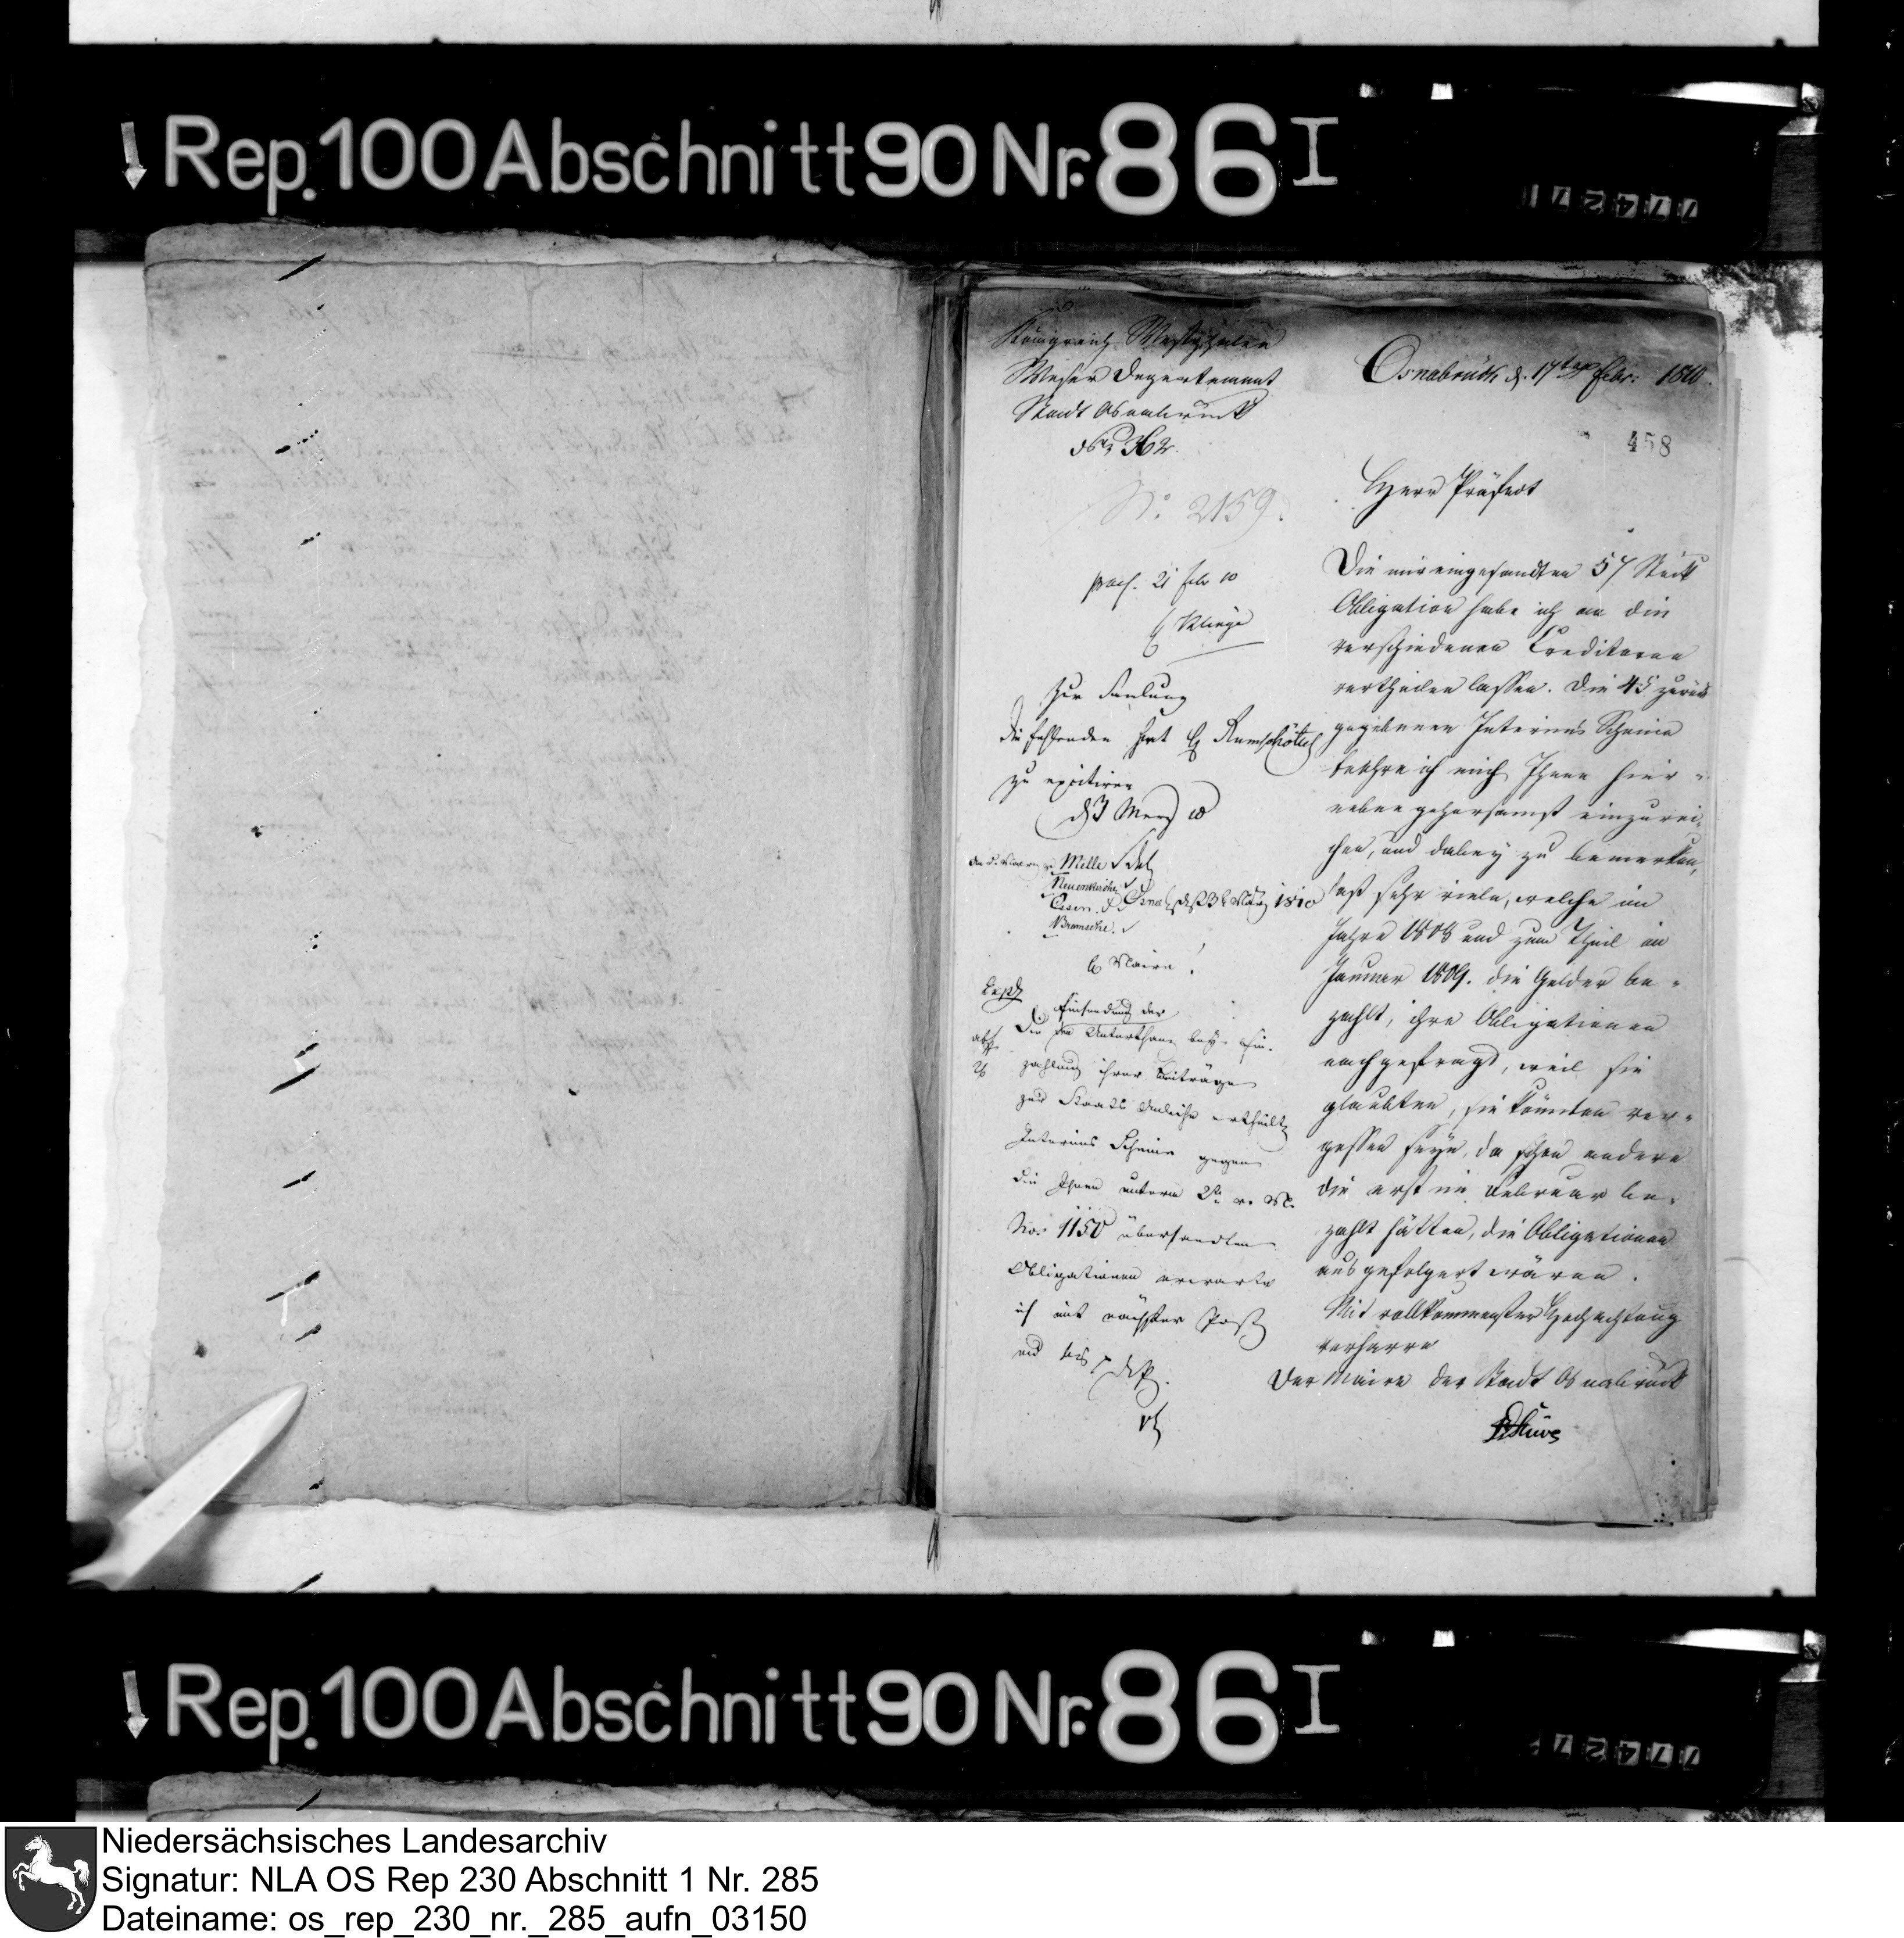 Rep. 100 Abschnitt 90 Nr. 86 I
Königreich Westphalen
Weser Departement
Stadt Osnabrück
No 362.
No. 2159.
Osnabrück d. 17ten Febr: 1810.
458
Herr Präfect
Die mir eingesandten 57 Stück
Obligation habe ich an die
verschiedenen Creditoren
vertheilen lassen. Die 45 zurück
gegebenen Interims Scheine
beehre ich mich Ihnen hier-
neben gehorsamst einzurei-
chen, und dabey zu bemerken,
daß sehr viele, welche im
Jahre 1808 und zum Theil im
Januar 1809. die Gelder be-
zahlt, ihre Obligationen
nachgefragt, weil sie
glaubten, sie könnten ver-
gessen seyn, da schon andere
die erst im Februar be-
zahlt hätten, die Obligationen
ausgefolgert wären.
Mit vollkommenster Hochachtung
verharre
Der Maire der Stadt Osnabrück
Stüve
21 Febr 10
zur Samlung
die fehlenden hat H Rumschöttel
zu excitiren
d 3 Merz 10
Melle
Neuenkirchen
Essen
Bramsche.
Osnabr. d 3 März 1810
H Maire!
Einsendung der
Die den Unterthanen bey Ein-
zahlung ihrer Beiträge
zur Staats Anleihe ertheilten
Interims Scheine gegen
die Ihnen unterm 2n v. M.
No. 1150 übersandten
Obligationen erwarte
ich mit nächster Post
Rep. 100 Abschnitt 90 Nr. 86 I
Niedersächsisches Landesarchiv
Signatur: NLA OS Rep 230 Abschnitt 1 Nr. 285
Dateiname: os_rep_230_nr._285_aufn_03150